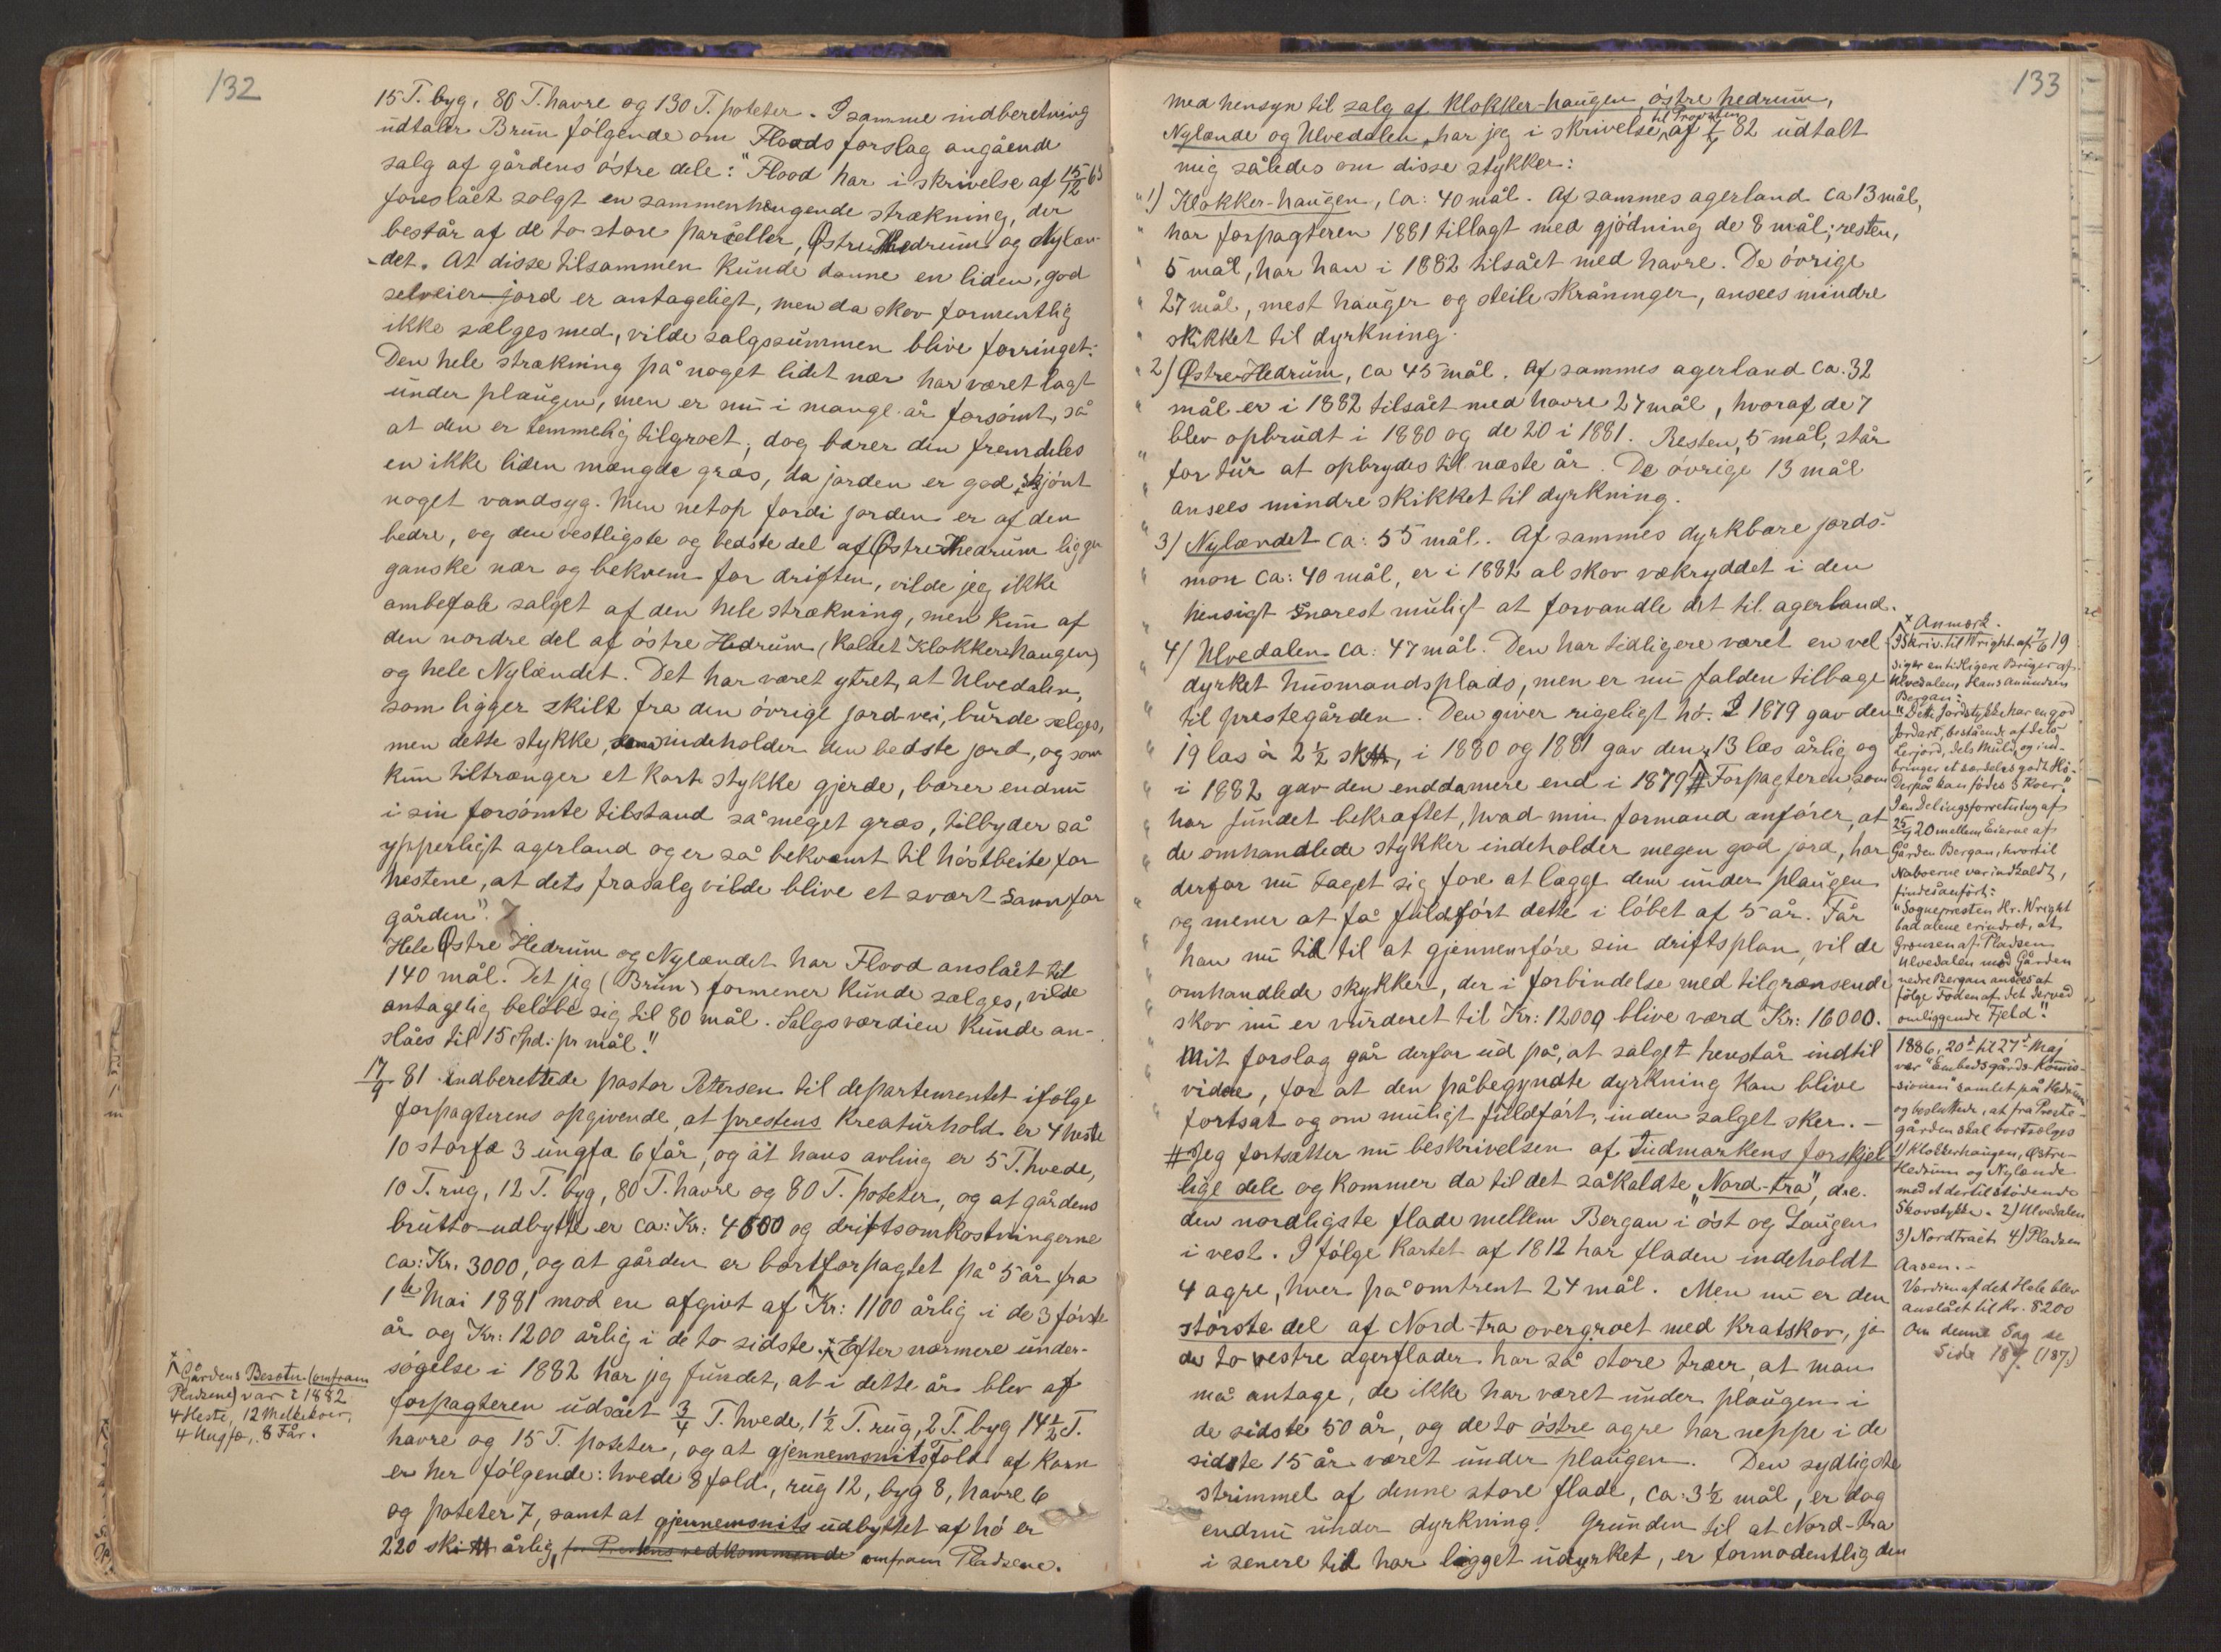 132
15 T. byg, 86 T. havre og 130 T. poteter. I samme indberetning
udtaler Brun følgende om Floods forslag angående
salg af gårdens östre dele: "Flood har i skrivelse af 15/2 63
foreslået solgt en sammenhængende strækning, der
består af de to store parceller, Østre Hedrum og Nylæn-
-det. At disse tilsammen kunde danne en liden, god
selveier-jord er antageligt, men da skov formentlig
ikke sælges med, vilde salgssummen blive forringet.
Den hele strækning på noget lidet nær har været lagt
under plaugen, men er nu i mange år forsömt, så
at den er temmelig tilgroet; dog bærer den fremdeles
en ikke liden mængde græs, da jorden er god, skjönt
noget vandsyg. Men netop fordi jorden er af den
bedre, og den vestligste og bedste del af Østre Hedrum ligger
ganske nær og bekvem for driften, vilde jeg ikke
anbefale salget af den hele strækning, men kun af
den nordre del af östre Hedrum (kaldet Klokker-haugen)
og hele Nylændet. Det har været ytret, at Ulvedalen,
som ligger skilt fra den övrige jord-vei, burde sælges,
men dette stykke, som indeholder den bedste jord, og som
kun tiltrænger et kort stykke gjerde, bærer endnu
i sin forsömte tilstand så meget græs, tilbyder så
ypperligt agerland og er så bekvemt til höstbeite for
hestene, at dets frasalg vilde blive et svært savn for
gården".
Hele Østre Hedrum og Nylændet har Flood anslået til
140 mål. Det jeg (Brun) formener kunde sælges, vilde
antagelig belöbe sig til 80 mål. Salgsværdien kunde an-
slåes til 15 Spd: pr mål."
17/9 81 indberettede pastor Petersen til departementet ifölge
forpagterens opgivende, at prestens kreaturhold er 4 heste
10 storfæ 3 ungfæ 6 får, og at hans avling er 5 T. hvede,
10 T. rug, 12 T. byg, 80 T. havre og 80 T. poteter, og at gårdens
brutto-udbytte er ca: Kr: 4500 og driftsomkostningerne
ca: Kr. 3000, og at gården er bortforpagtet på 5 år fra
1ste Mai 1881 mod en afgivt af Kr: 1100 årlig i de 3 förste
år og Kr: 1200 årlig i de to sidste. x Efter nærmere under-
sögelse i 1882 har jeg fundet, at i dette år blev af
forpagteren udsået 3/4 T. hvede, 1 1/2 T. rug, 2 T. byg 14 1/2 T.
havre og 15 T. poteter, og at gjennemsnitsfold af korn
er her følgende: hvede 8 fold, rug 12, byg 8, havre 6
og poteter 7, samt at gjennemsnits udbyttet af hö er
220 ski ℔ årlig, for Prestens vedkommende omfram Pladsene.
x Gårdens Besætn. (omfram
Pladsene) var i 1882
4 Heste, 12 Melkekoer,
4 Ungfæ, 8 Får.
133
med hensyn til salg af Klokker-haugen, östre hedrum,
Nylænde og Ulvedalen, har jeg i skrivelse til Provsten af 82 udtalt
mig således om disse stykker:
"1) Klokker-haugen, ca: 40 mål. Af sammes agerland ca 13 mål,
" har forpagteren 1881 tillagt med gjödning de 8 mål; resten,
" 5 mål, har han i 1882 tilsået med havre. De övrige
" 27 mål, mest hauger og steile skråninger, ansees mindre
" skikket til dyrkning.
" 2) Østre-Hedrum, ca 45 mål. Af sammes agerland ca. 32
" mål er i 1882 tilsået med havre 27 mål, hvoraf de 7
" blev opbrudt i 1880 og de 20 i 1881. Resten, 5 mål, står
" for tur at opbrydes til næste år. De övrige 13 mål
" ansees mindre skikket til dyrkning.
" 3) Nylændet ca: 55 mål. Af sammes dyrkbare jords-
" mon ca: 40 mål, er i 1882 al skov vækryddet i den
" hensigt snarest muligt at forvandle det til agerland.
" 4) Ulvedalen ca: 47 mål. Den har tidligere været en vel
" dyrket husmandsplads, men er nu falden tilbage
" til prestegården. Den giver rigeligt hö. I 1879 gav den
" 19 læs à 2 1/2 sk℔, i 1880 og 1881 gav den 13 læs årlig og
" i 1882 gav den enddamere end i 1879 # Forpagteren, som
" har fundet bekræftet, hvad min formand anförer, at
" de omhandlede stykker indeholder megen god jord, har
" derfor nu taget sig fore at lægge dem under plaugen
" og mener at få fuldfört dette i löbet af 5 år. Får
" han nu tid til at gjennemföre sin driftsplan, vil de
" omhandlede stykker, der i forbindelse med tilgrænsende
" skov nu er vurderet til Kr: 12000 blive værd Kr: 16000.
" Mit forslag går derfor ud på, at salget henstår indtil
" videre, for at den påbegyndte dyrkning kan blive
" fortsat og om muligt fuldfört, inden salget sker. -
# Jeg fortsætter nu beskrivelsen af Indmarkens forskjel-
lige dele og kommer da til det såkaldte "Nord-træ", d.e.
den nordligste flade mellem Bergan i öst og Laugen
i vest. I fölge kartet af 1812 har fladen indeholdt
4 agre, hver på omtrent 24 mål. Men nu er den
störste del af Nord-træ overgroet med kratskov, ja
de to vestre agerflader har så store træer, at man
må antage, de ikke har været under plaugen i
de sidste 50 år, og de to östre agre har neppe i de
sidste 15 år været under plaugen. Den sydligste
strimmel af denne store flade, ca: 3 1/2 mål, er dog
endnu under dyrkning. Grunden til at Nord-træ
i senere tid har ligget udyrket, er formodentlig den
x Anmærk.
I Skriv. til Wright af 7/6 19
siger en tidligere Bruger af
Ulvedalen, Hans Amundsen
Bergan:
"Dette Jordstykke har en god
Jordart, bestående af dels
Lerjord, dels Muld, og ind-
bringer et særdeles godt Hö.
Derpå kan födes 3 Koer."
I en Delingsforretning af
25/ 20 mellem Eierne af
Gården Bergan, hvortil
Naboerne var indkaldt,
findes anfört:
"Sognepresten Hr. Wright
bad alene erindret, at
Grænsen af Pladsen
Ulvedalen mod Gården
nedre Bergan ansees at
fölge Foden af det derved
omliggende Fjeld."
1886, 20de til 27de Maj
var "Embedsgårds-Komis-
-sionen" samlet på Hedrum
og besluttede, at fra Preste-
gården skal bortsælges
1) Klokkerhaugen, Østre-
Hedrum og Nylænde
med et dertil stödende
Skovstykke. 2) Ulvedalen
3) Nordtræet 4) Pladsen
Aasen. -
Værdien af det Hele blev
anslået til Kr. 8200
Om denne Sag se
Side 187. (187.)